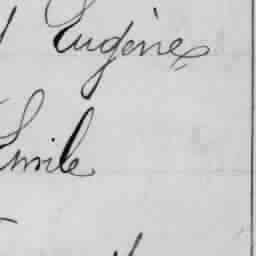 Eugène
Emile